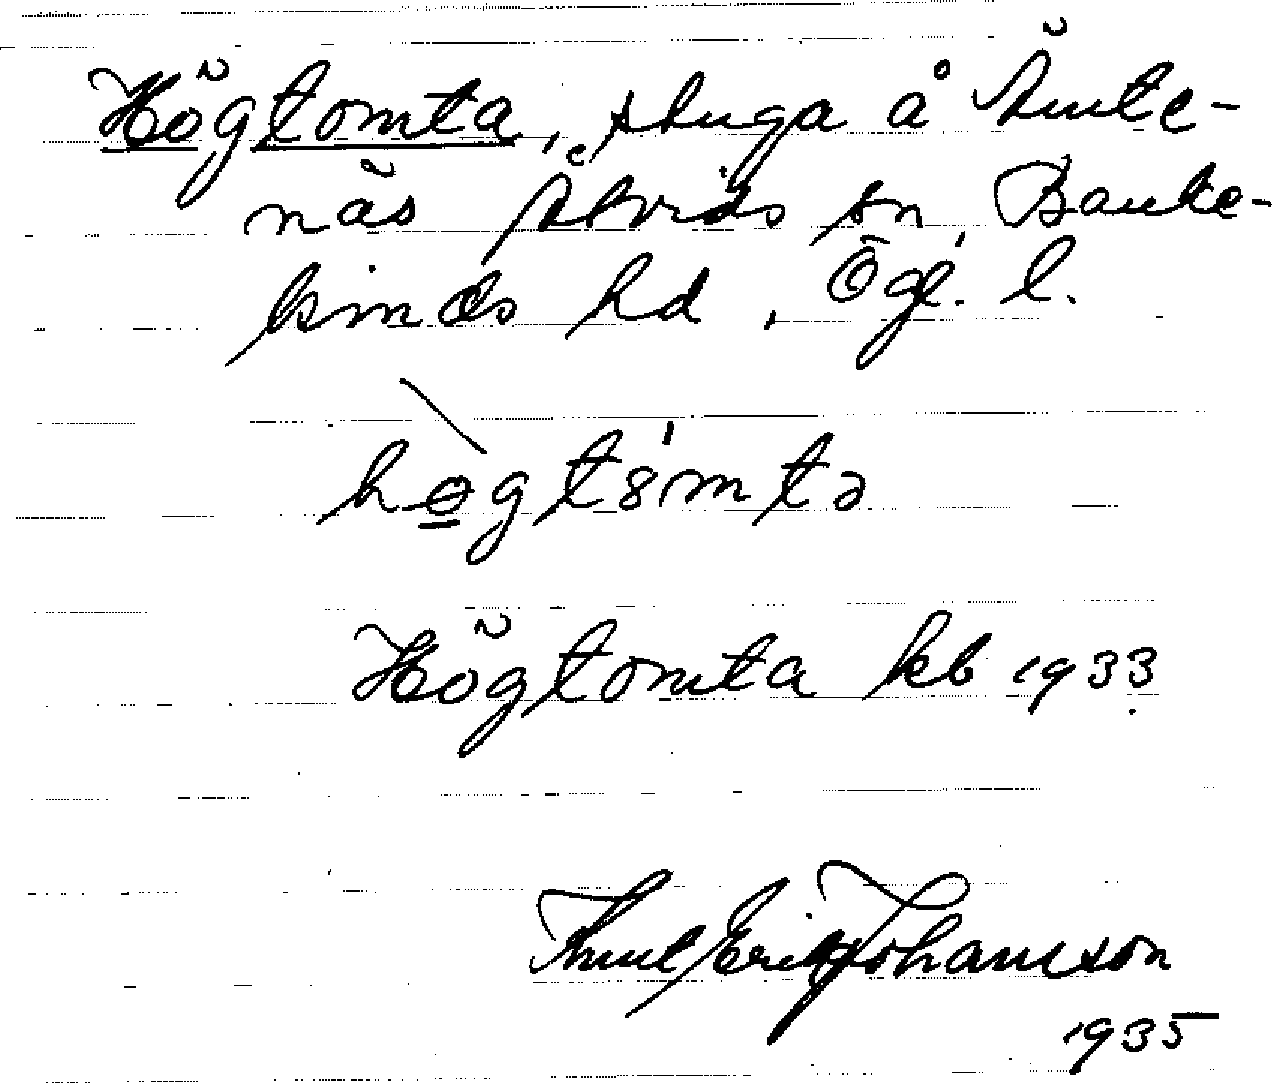 Högtomta, stuga å Ämte-
näs Åtvids sn, Banke-
kinds hd, Ögl. l.
hø̲̀gtȣ́mtə
Högtomta kb 1933
Erik Johansson
1935